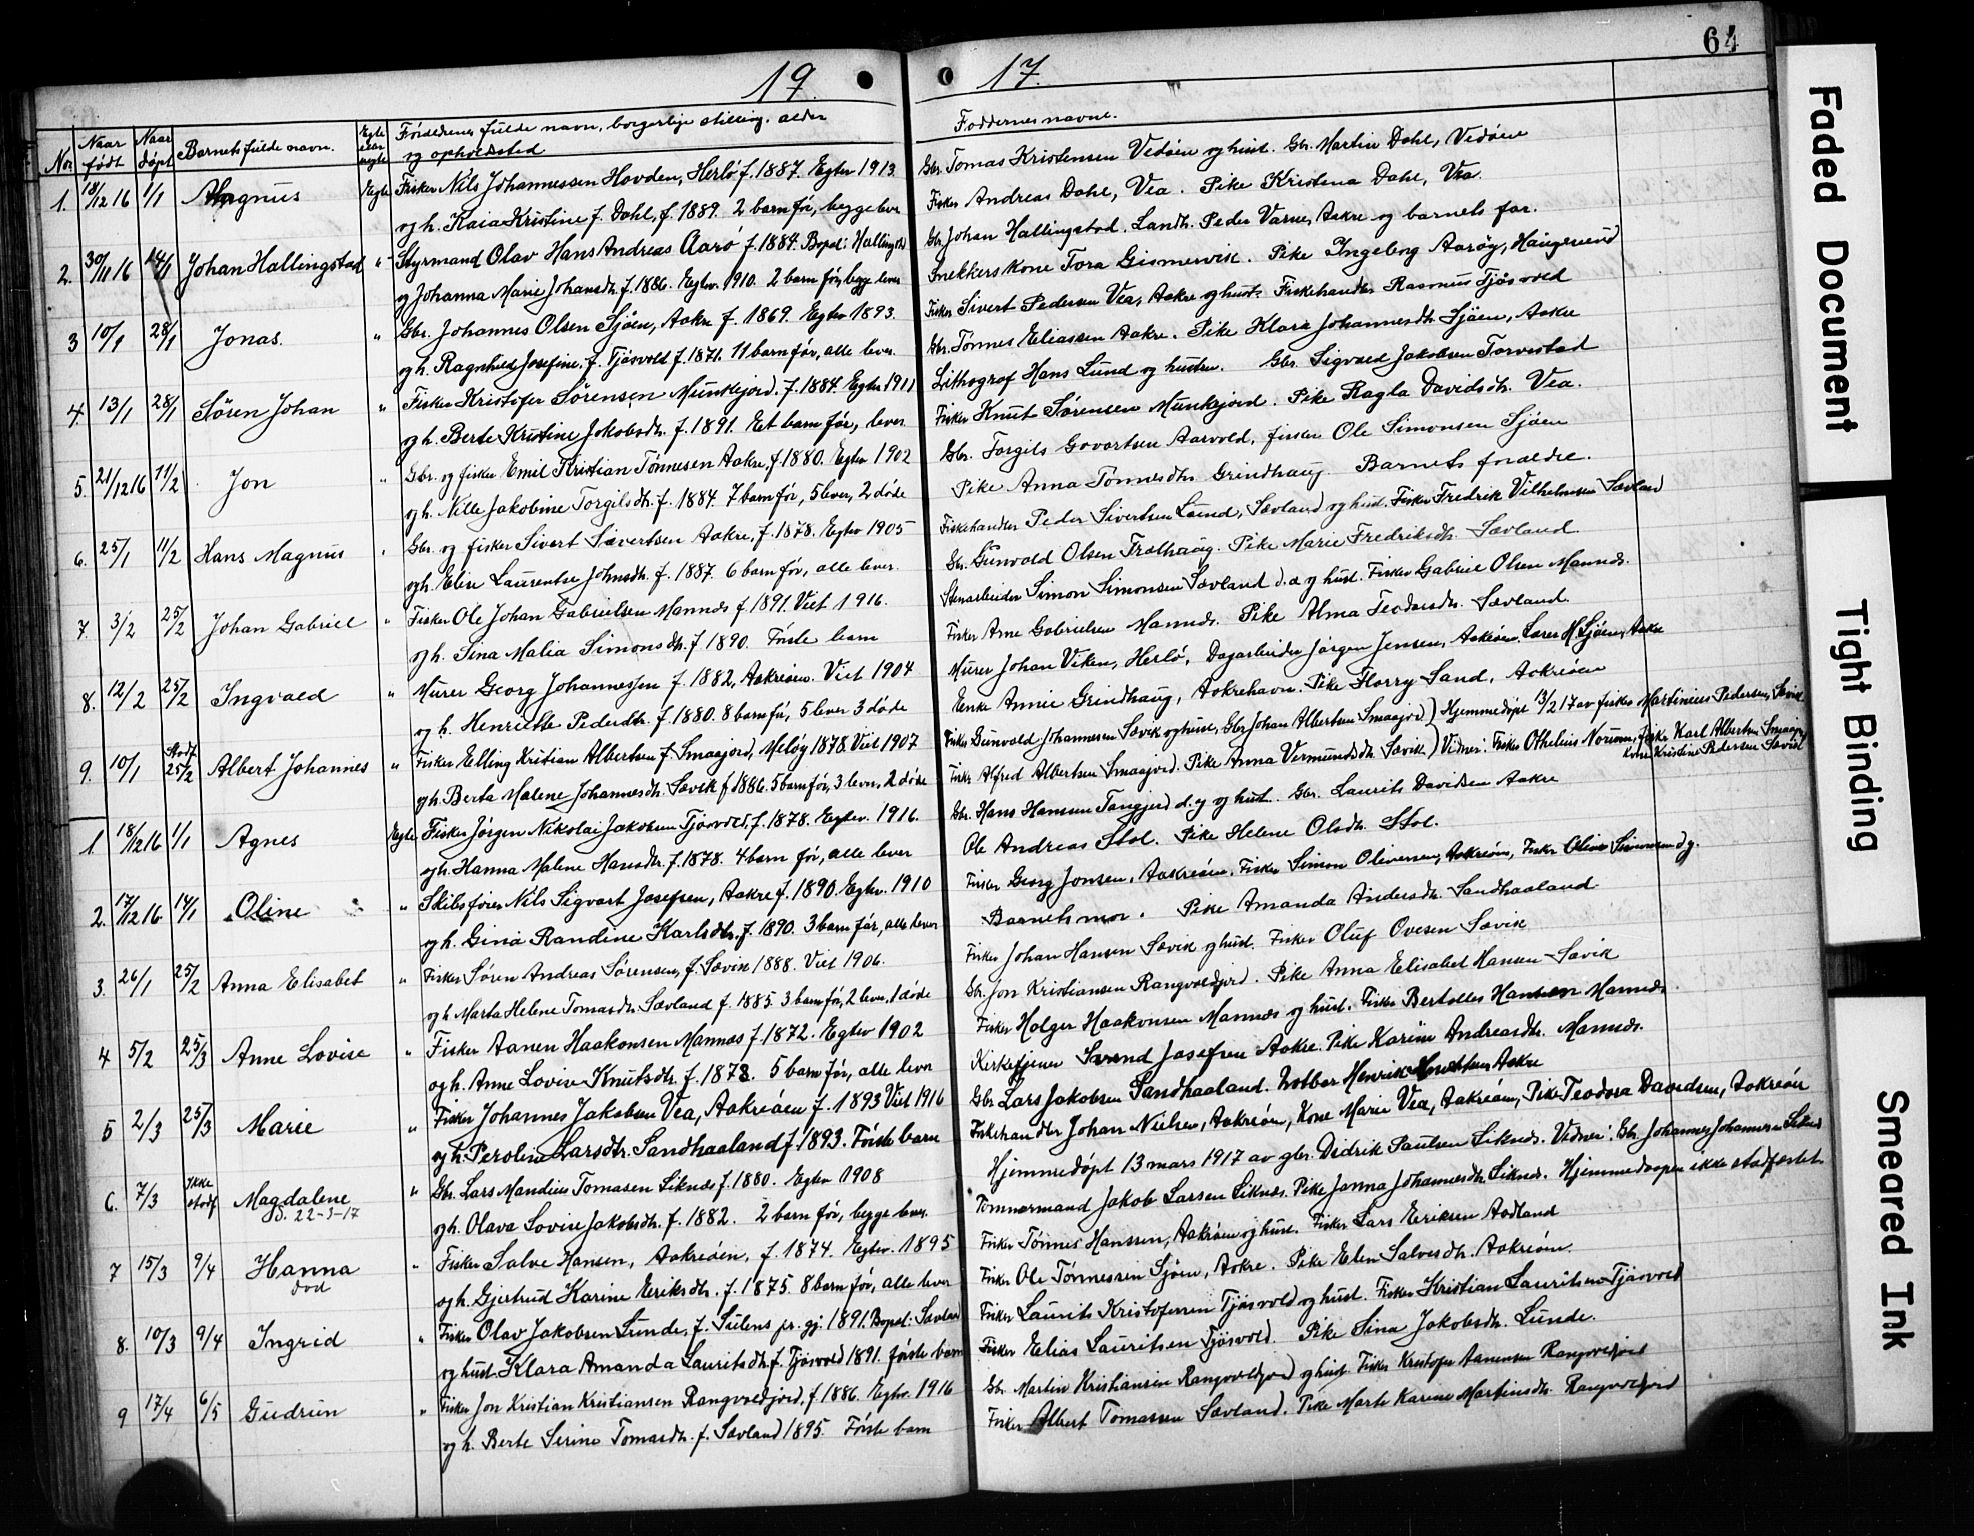 64
19
17.
No.
Naar født
Naar døpt
Barnets fulde navn.
Egte eller uegte
Forældrenes fulde navn, borgerlige stilling, alder og opholdssted
Faddernes navne.
1. 18/12 16 1/1 Magnus Egte Fisker Nils Johannessen Hovden, Herlø f. 1887. Egtev 1913. Gbr. Tomas Kristensen Vedøen og hust. Gbr. Martin Dahl, Vedøen
og h. Kaia Kristine f. Dahl, f. 1889. 2 barn før, begge lever Fisker Andreas Dahl, Vea. Pike Kristena Dahl, Vea.
2. 30/11 16 14/1 Johan Hallingstad " Styrmand Olav Hans Andreas Aarø f. 1884. Bopæl: Hallingstd Gbr Johan Hallingstad. Landh. Peder Varne, Aakre og barnets far.
og Johanna Marie Johansdt. f. 1886. Egtev. 1910. 2 barn før, begge lever Snekkers kone Tora Gismervik. Pike Ingeborg Aarøy, Haugesund
3 10/1 28/1 Jonas. " Gbr. Johannes Olsen Sjøen, Aakre f. 1869. Egtev 1893. Fisker Sivert Pedersen Vea, Aakre og hust. Fiskehandler Rasmus Tjøsvold
og h. Ragnhild Josefine f. Tjøsvold f. 1871. 11 barn før, alle lever. Gbr. Tønnes Eliassen Aakre. Pike Klara Johannesdt. Sjøen, Aakre
4. 13/1 28/1 Søren Johan " Fisker Kristofer Sørensen Munkejord. f. 1884. Egtev 1911 Lithograf Hans Lund og hustru. Gbr. Sigvald Jakobsen Torvestad
og h. Berte Kristine Jakobsdt. f. 1891. Et barn før, lever Fisker Knut Sørensen Munkejord. Pike Ragla Davidsdt. Vea.
5. 21/12 16 11/2 Jon " Gbr. og fisker Emil Kristian Tønnesen Aakre, f. 1880. Egtev 1902 Gbr. Torgils Govertsen Aarvold, fisker Ole Simonsen Sjøen
og h. Nille Jakobine Torgilsdt. f. 1884. 7 barn før, 5 lever, 2 døde Pike Anna Tønnesdtr. Grindhaug. Barnets forældre.
6. 25/1 11/2 Hans Magnus " Gbr. og fisker Sivert Sivertsen Aakre, f. 1878. Egtev 1905 Fiskehandler Peder Sivertsen Lund, Sævland og hust. Fisker Fredrik Vilhelmsen Sævland
og h. Elin Laurentse Johnsdt. f. 1887. 6 barn før, alle lever. Gbr. Gunvald Olsen Trælhaug. Pike Marie Fredriksdt. Sævland
7. 3/2 25/2 Johan Gabriel " Fisker Ole Johan Gabrielsen Mannes f. 1891. Viet 1916. Stenarbeider Simon Simonsen Sævland d.æ og hust. Fisker Gabriel Olsen Mannes.
og h. Sina Malia Simonsdt. f. 1890. Første barn Fisker Arne Gabrielsen Mannes. Pike Alma Teodorsdt. Sævland.
8. 12/2 25/2 Ingvald " Murer Georg Johannessen f. 1882, Aakreøen. Viet 1904 Murer Johan Viken, Herlø, Dagarbeider Jørgen Jensen, Aakreøen Lærer M. Sjøen, Aakre
og h. Henriette Pedersdt. f. 1880. 8 barn før, 5 lever 3 døde Enke Annie Grindhaug, Aakrehavn. Pike Florry Sand, Aakreøen
9. 10/1 Stadf. 25/2 Albert Johannes " Fisker Elling Kristian Albertsen f. Smaajord, Meløy 1878. Viet 1907 Fisker Gunvald Johannesen Sævik og hust, Gbr. Johan Albertsen Smaajord) Hjemmedøpt 13/2 17 av fisker Martinius Pedersen, Sævik
og h. Berta Malene Johannesdt. Sævik f. 1886. 5 barn før, 3 lever, 2 døde Fisker Alfred Albertsen Smaajord. Pike Anna Vermundsdt. Sævik) Vidner: Fisker Othelius Normen, fisker Karl Albertsen Smaajord
Kone Kristine Pedersen Sævik
1 18/12 16 1/1 Agnes Egte Fisker Jørgen Nikolai Jakobsen Tjøsvold, f. 1878. Egtev. 1916. Gbr. Hans Hansen Tangjerd d. y og hust. Gbr. Laurits Davidsen Aakre
og h. Hanna Malene Hansdt. f. 1878. 4 barn før, alle lever Ole Andreas Stol. Pike Helene Olsdt. Stol.
2. 17/12 16 14/1 Oline " Skibsfører Nils Sigvart Josefsen, Aakre f. 1890. Egtev. 1910 Fisker Georg Jonsen, Aakreøen, Fisker Simon Oliversen, Aakreøen, Fisker Oliver Simonsen d y.
og h. Gina Randine Karlsdtr. f. 1890. 3 barn før, alle lever Barnets mor. Pike Amanda Andersdt. Sandhaaland
3. 26/1 25/2 Anna Elisabet " Fisker Søren Andreas Sørensen, f. Sævik 1888. Viet 1906. Fisker Johan Hansen Sævik og hust. Fisker Oluf Ovesen Sævik
og h Marta Helene Tomasdt. Sævland f. 1885. 3 barn før, 2 lever, 1 døde Gbr. Jon Kristiansen Rangvoldjord. Pike Anna Elisabet Hansen Sævik
4 5/2 25/3 Anne Lovise " Fisker Aanen Haakonsen Mannes f. 1872. Egtev 1902 Fisker Holger Haakonsen Mannes og hust. Fisker Bertolles Hansen Mannes.
og h. Anne Lovise Knutsdtr. f. 1878. 5 barn før, alle lever Kirketjener Svend Josefsen Aakre. Pike Karine Andreasdt. Mannes.
5 2/3 25/3 Marie " Fisker Johannes Jakobsen Vea, Aakreøen f. 1893 Viet 1916 Gbr. Lars Jakobsen Sandhaaland. Notbas Henrik Knutsen Aakre
og h. Peroline Larsdtr. Sandhaaland f. 1893. Første barn Fiskehandler Johan Nielsen, Aakreøen, Kone Marie Vea, Aakreøen, Pike Teodora Davidsen, Aakreøen
6. 7/3 Ikke stadf Magdalene " Gbr. Lars Mandius Tomasen Liknes f. 1880. Egtev 1908 Hjemmedøpt 13 mars 1917 av gbr. Didrik Paulsen Liknes. Vidner: Gbr. Johannes Johannesen Liknes
D. 22-3-17 og h. Olava Lovise Jakobsdt. f. 1882. 2 barn før, begge lever. Tømmermand Jakob Larsen Liknes. Pike Janna Johannesdt. Liknes. Hjemmedaapen ikke stadfæstet
7 15/3 9/4 Hanna " Fisker Salve Hansen, Aakreøen, f. 1874. Egtev. 1895 Fisker Tønnes Hanssen, Aakreøen og hust. Fisker Lars Eriksen Aadland
død og h. Gjertrud Karine Eriksdt. f. 1875. 8 barn før, alle lever Fisker Ole Tønnessen Sjøen, Aakre. Pike Elen Salvesdt. Aakreøen.
8. 10/3 9/4 Ingrid " Fisker Olav Jakobsen Lunde, f. Sulens pr. gj. 1891. Bopæl: Sævland Fisker Laurits Kristofersen Tjøsvold og hust. Fisker Kristian Lauritsen Tjøsvold
og hust. Klara Amanda Lauritsdt. f. Tjøsvold 1891. første barn Fisker Elias Lauritsen Tjøsvold. Pike Sina Jakobsdt. Lunde.
9 17/4 6/5 Gudrun " Fisker Jon Kristian Kristiansen Rangvoldjord, f 1886. Egtev. 1916 Gbr. Martin Kristiansen Rangvoldjord og hust. Fisker Kristofer Aanensen Rangvoldjord
og h. Berte Serine Tomasdt. f. Sævland 1895. Første barn Fisker Albert Tomassen Sævland. Pike Marte Karine Martinsdt. Rangvoldjord
Faded Document
Tight Binding
Smeared Ink